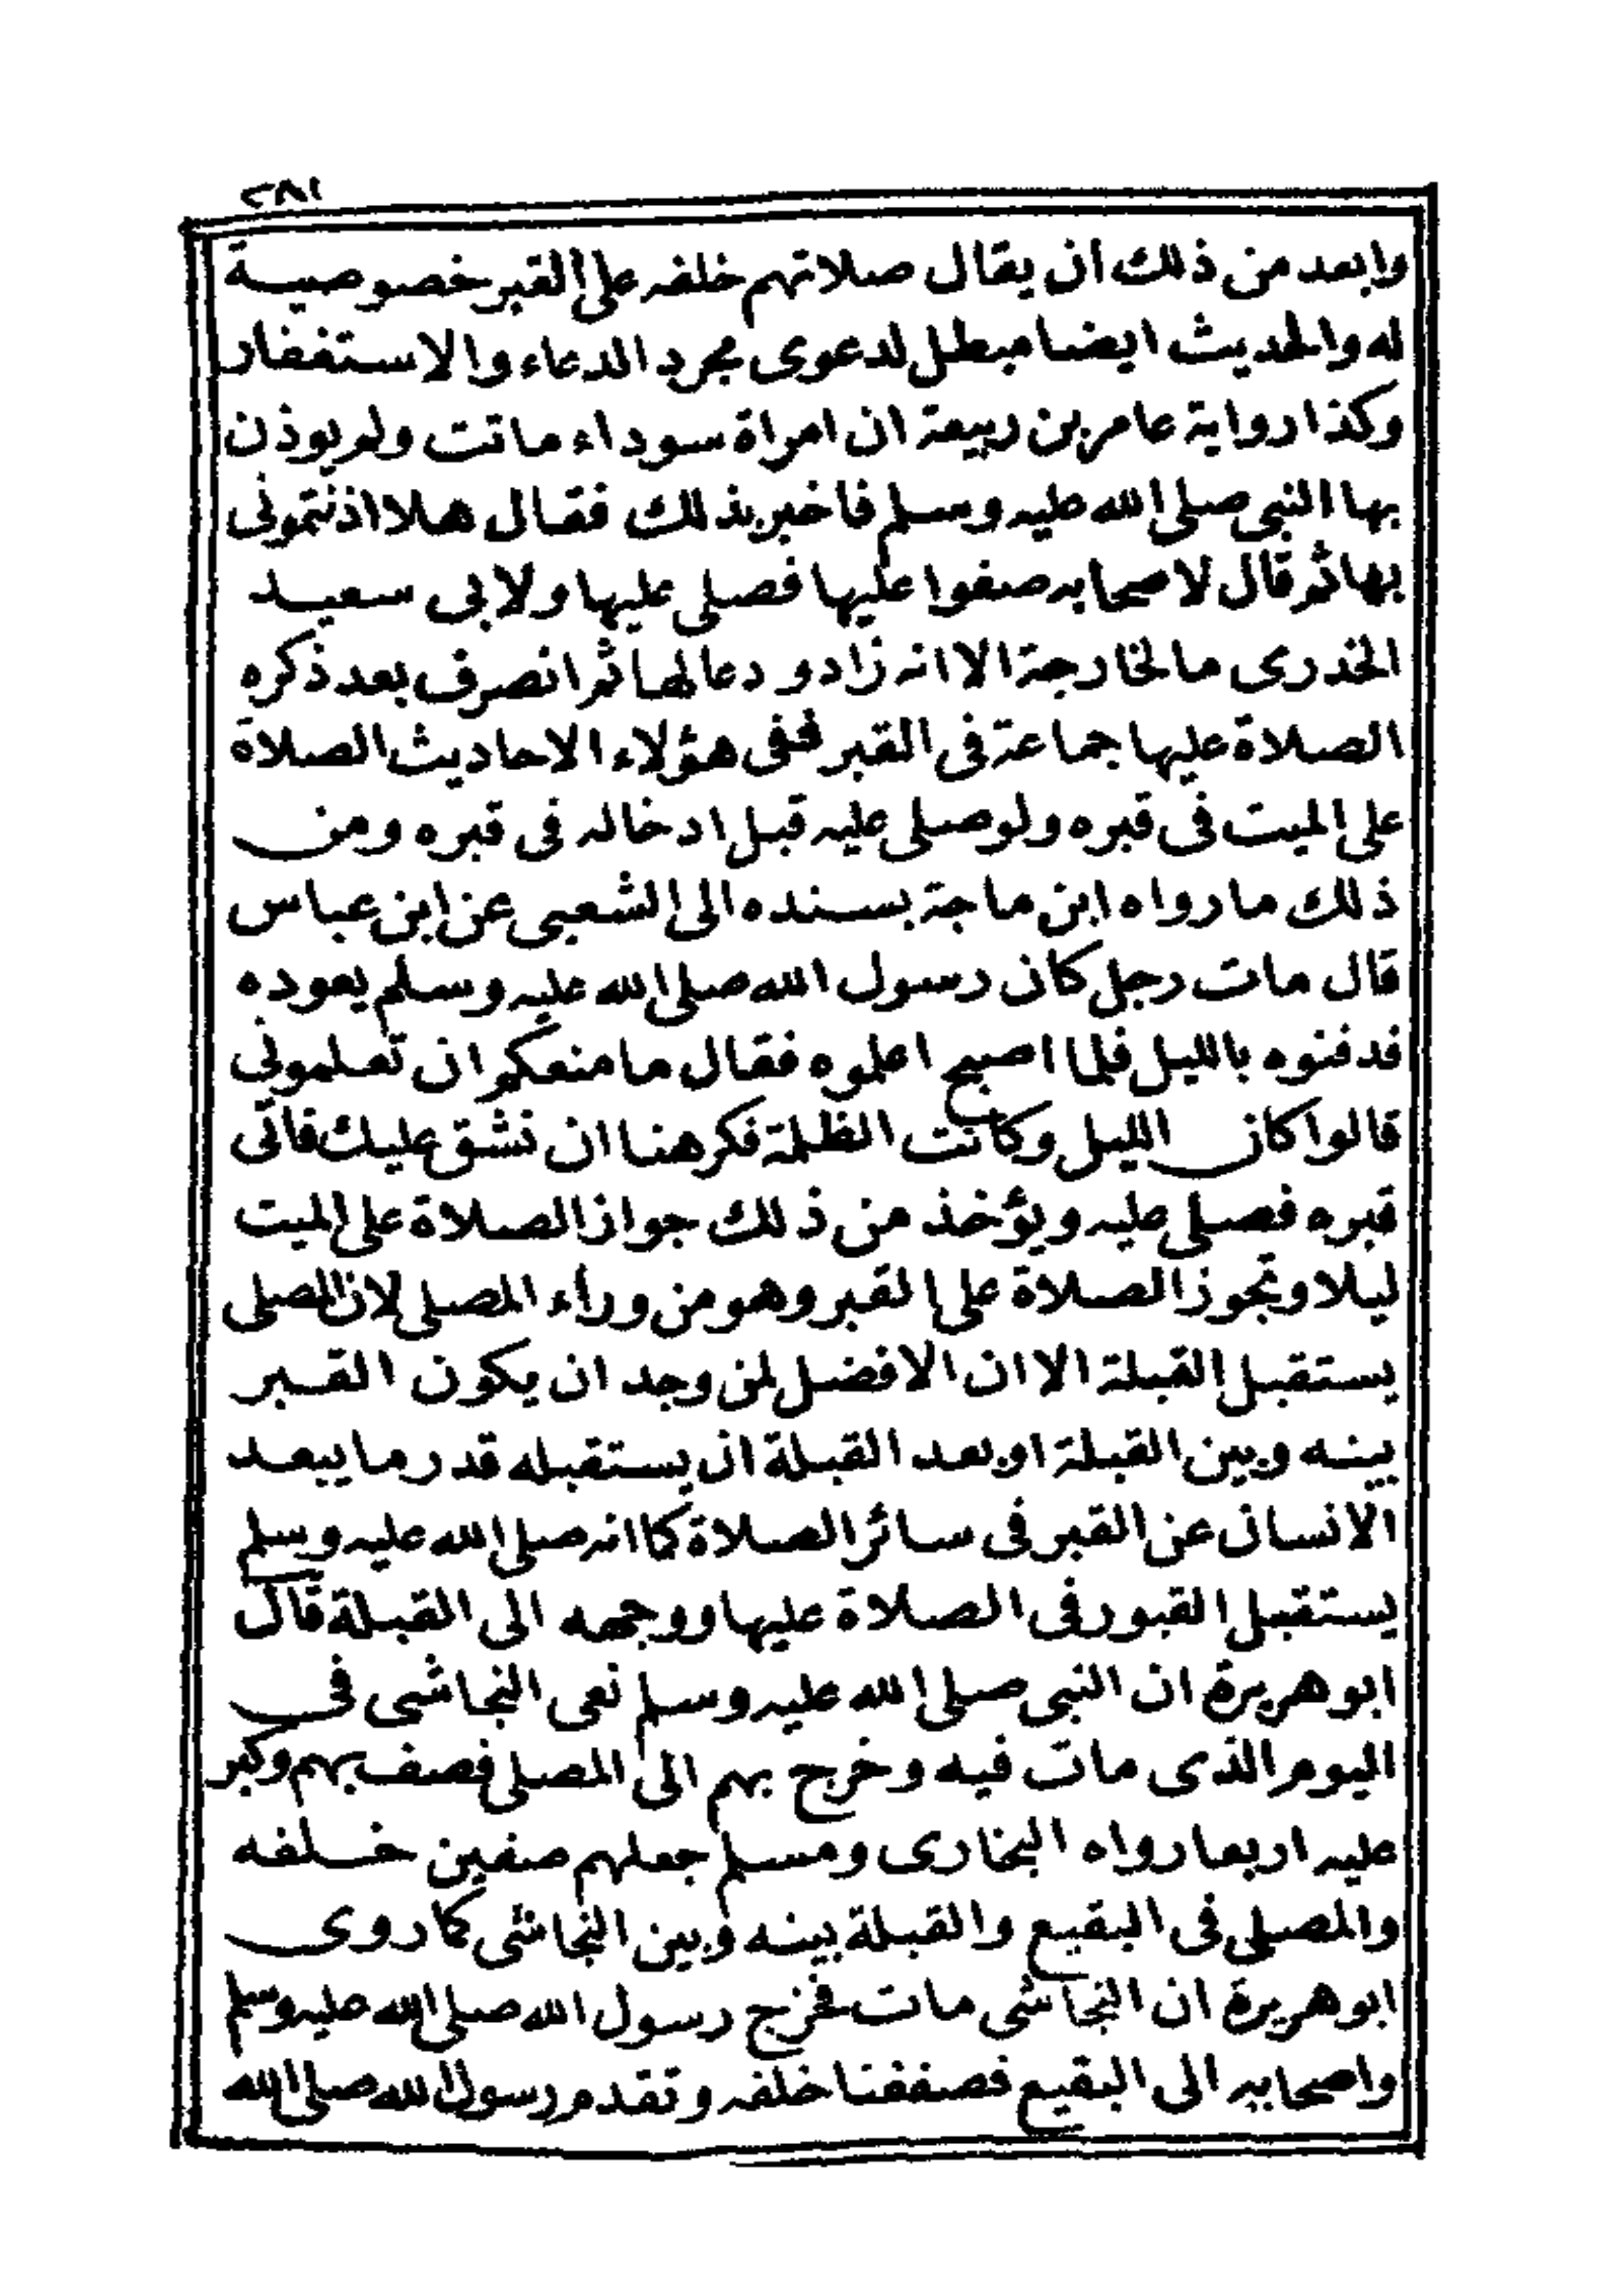 ٢٨١
وابعد من ذلك أن يقال صلاتهم خلفه على القبر خصوصية
له والحديث ايضا مبطل لدعوى مجرد الدعاء والاستغفار
وكذا رواية عامر بن ربيعة ان امراة سوداء ماتت ولم يوذن
بها النبي صلى الله عليه وسلم فاخبر بذلك فقال هلا اذنتمونى
بها ثم قال لاصحابه صفوا عليها فصلى عليها ولابى سعيد
الخدرى مالخارجة الا انه زاد ودعا لها ثم انصرف بعد ذكره
الصلاة عليها جماعة فى القبر ففى هؤلاء الاحاديث الصلاة
على الميت فى قبره ولو صلى عليه قبل ادخاله فى قبره ومن
ذلك ما رواه ابن ماجة بسنده الى الشعبى عن ابن عباس
قال مات رجل كان رسول الله صلى الله عليه وسلم يعوده
فدفنوه بالليل فلما اصبح اعلموه فقال ما منعكم ان تعلمونى
قالوا كان الليل وكانت الظلمة فكرهنا ان نشق عليك فاتى
قبره فصلى عليه ويؤخذ من ذلك جواز الصلاة على الميت
ليلا وتجوز الصلاة على القبر وهو من وراء المصلى لان المصلى
يستقبل القبلة الا ان الافضل لمن وجد ان يكون القبر
بينه وبين القبلة او بعد القبلة ان يستقبله قدر ما يبعد
الانسان عن القبر فى سائر الصلاة كما انه صلى الله عليه وسلم
يستقبل القبور فى الصلاة عليها ووجهه الى القبلة قال
ابو هريرة ان النبى صلى الله عليه وسلم نعى النجاشى فى
اليوم الذى مات فيه وخرج بهم الى المصلى فصف بهم وكبر
عليه اربعا رواه البخارى ومسلم جعلهم صفين خلفه
والمصلى فى البقيع والقبلة بينه وبين النجاشى كما روى
ابو هريرة ان النجاشى مات فخرج رسول الله صلى الله عليه وسلم
واصحابه الى البقيع فصففنا خلفه وتقدم رسول الله صلى الله